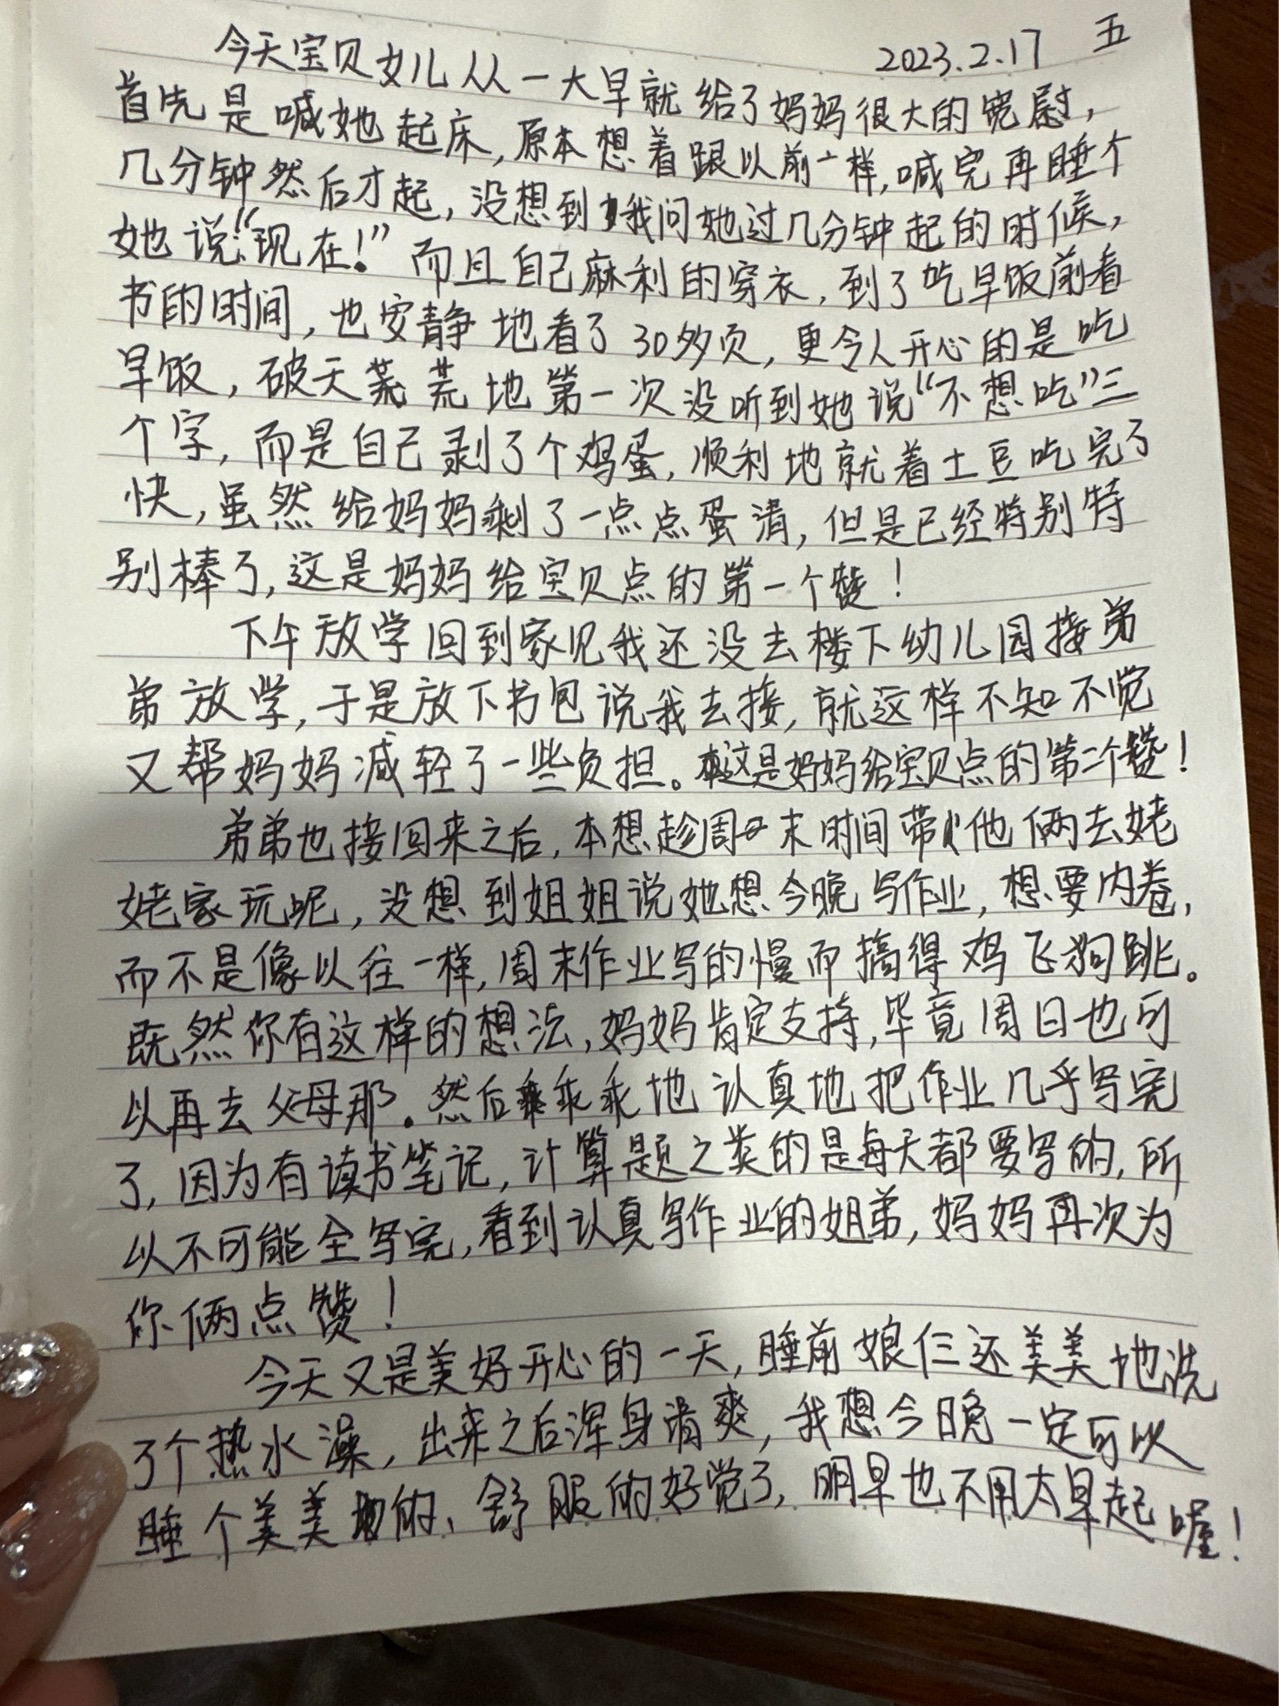 2023.2.17 五
今天宝贝女儿从一大早就给了妈妈很大的宽慰，
首先是喊她起床，原本想着跟以前一样，喊完再睡个
几分钟然后才起，没想到我问她过几分钟起的时候，
她说：“现在！”而且自己麻利的穿衣，到了吃早饭前看
书的时间，也安静地看了30多页，更令人开心的是吃
早饭，破天荒荒地第一次没听到她说“不想吃”三
个字，而是自己剥了个鸡蛋，顺利地就着土豆吃完了
快，虽然给妈妈剩了一点点蛋清，但是已经特别特
别棒了，这是妈妈给宝贝点的第一个赞！
下午放学回到家见我还没去楼下幼儿园接弟
弟放学，于是放下书包说我去接，就这样不知不觉
又帮妈妈减轻了一些负担。这是妈妈给宝贝点的第二个赞！
弟弟也接回来之后，本想趁周末时间带他俩去姥
姥家玩呢，没想到姐姐说她想今晚写作业，想要内卷，
而不是像以往一样，周末作业写的慢而搞得鸡飞狗跳。
既然你有这样的想法，妈妈肯定支持，毕竟周日也可
以再去父母那。然后乖乖地认真地把作业几乎写完
了，因为有读书笔记，计算题之类的是每天都要写的，所
以不可能全写完，看到认真写作业的姐弟，妈妈再次为
你俩点赞！
今天又是美好开心的一天，睡前娘仨还美美地洗
了个热水澡，出来之后浑身清爽，我想今晚一定可以
睡个美美的、舒服的好觉了，明早也不用太早起喔！